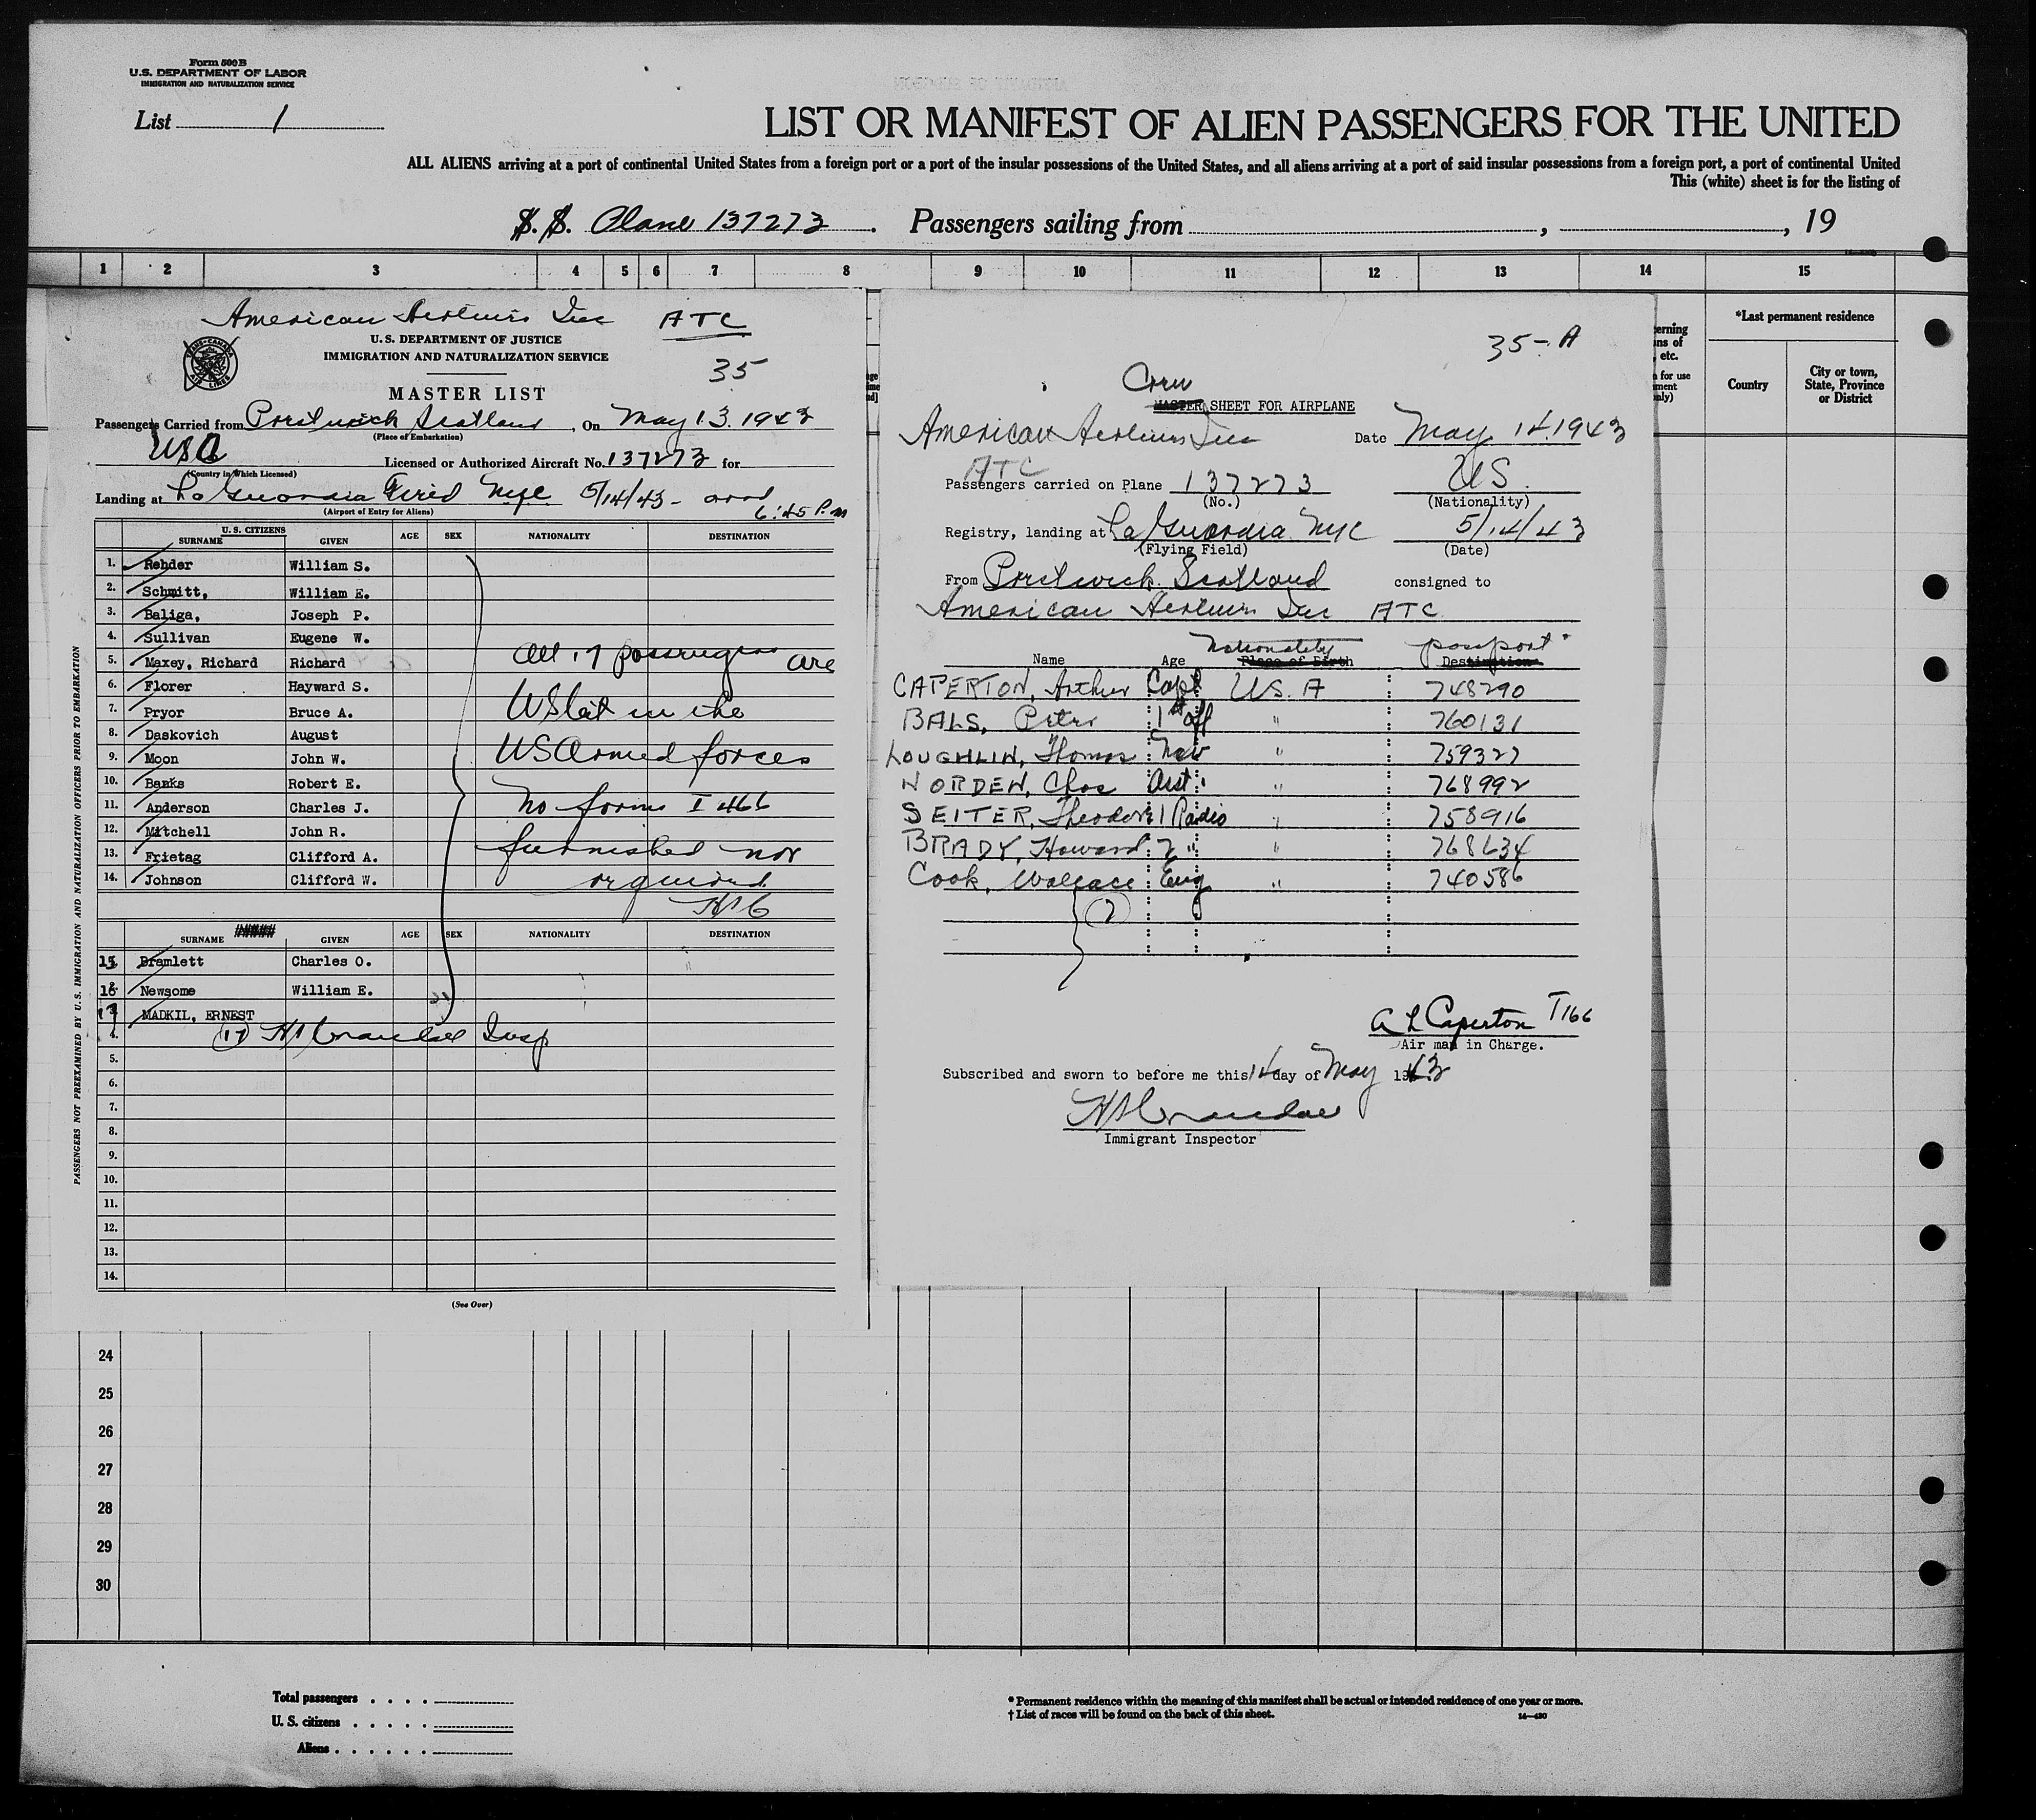 Form 500 B
U.S. DEPARTMENT OF LABOR
IMMIGRATION AND NATURALIZATION SERVICE
List 1
LIST OR MANIFEST OF ALIEN PASSENGERS FOR THE UNITED
ALL ALIENS arriving at a port of continental United States from a foreign port or a port of the insular possessions of the United States, and all aliens arriving at a port of said insular possessions from a foreign port, a port of continental United
This (white) sheet is for the listing of
S. S. Plane 137273. Passengers sailing from , , 19
1 2 3 4 5 6 7 8 9 10 11 12 13 14 15
American Airlines Inc ATC
TRANS-CANADA AIR LINES
U. S. DEPARTMENT OF JUSTICE
IMMIGRATION AND NATURALIZATION SERVICE
35
MASTER LIST
Passengers Carried from Prestwick Scotland, On May 13. 1943
(Place of Embarkation)
USA Licensed or Authorized Aircraft No. 137273 for
(Country in Which Licensed)
Landing at La Guardia Field NYC 5/14/43 - arrd 6:45 P.M
(Airport of Entry for Aliens)
U. S. CITIZENS
SURNAME GIVEN AGE SEX NATIONALITY DESTINATION
1. Rehder William S.
2. Schmitt, William E.
3. Baliga, Joseph P.
4. Sullivan Eugene W.
5. Maxey, Richard Richard All 17 passengers are
6. Florer Hayward S.
7. Pryor Bruce A. US Cit in the
8. Daskovich August
9. Moon John W. US Armed forces
10. Banks Robert E.
11. Anderson Charles J. No forms I 466
12. Mitchell John R.
13. Frietag Clifford A. furnished nor
14. Johnson Clifford W. required
SURNAME GIVEN AGE SEX NATIONALITY DESTINATION
15 Bramlett Charles O.
16 Newsome William E.
17 MADKIL, ERNEST
4. (17) Crandall Insp
5.
6.
7.
8.
9.
10.
11.
12.
13.
14.
(See Over)
PASSENGERS NOT PREEXAMINED BY U. S. IMMIGRATION AND NATURALIZATION OFFICERS PRIOR TO EMBARKATION
35-A
Crew
MASTER SHEET FOR AIRPLANE
American Airlines Inc Date May 14. 1943
ATC
Passengers carried on Plane 137273 US.
(No.) (Nationality)
Registry, landing at La Guardia NYC 5/14/43
(Flying Field) (Date)
From Prestwick Scotland consigned to
American Airlines Inc ATC
Nationality passport
Name Age Place of Birth Destination
CAPERTON, Arthur Capt US. A 748290
BALS, Peter 1st off " 760131
LOUGHLIN, Thomas Nav " 759327
NORDEN, Chas Asst " 768992
SEITER, Theodore 1 Radio " 758916
BRADY, Howard 2 " " 768634
Cook, Wallace Eng " 740586
7
A L Caperton T166
Air man in Charge.
Subscribed and sworn to before me this 14 day of May 1943
Crandall
Immigrant Inspector
erning
ns of
, etc.
for use
ment
nly)
*Last permanent residence
Country
City or town, State, Province or District
24
25
26
27
28
29
30
Total passengers . . . .
U. S. citizens . . . . .
Aliens . . . . . .
* Permanent residence within the meaning of this manifest shall be actual or intended residence of one year or more.
† List of races will be found on the back of this sheet.
14—430